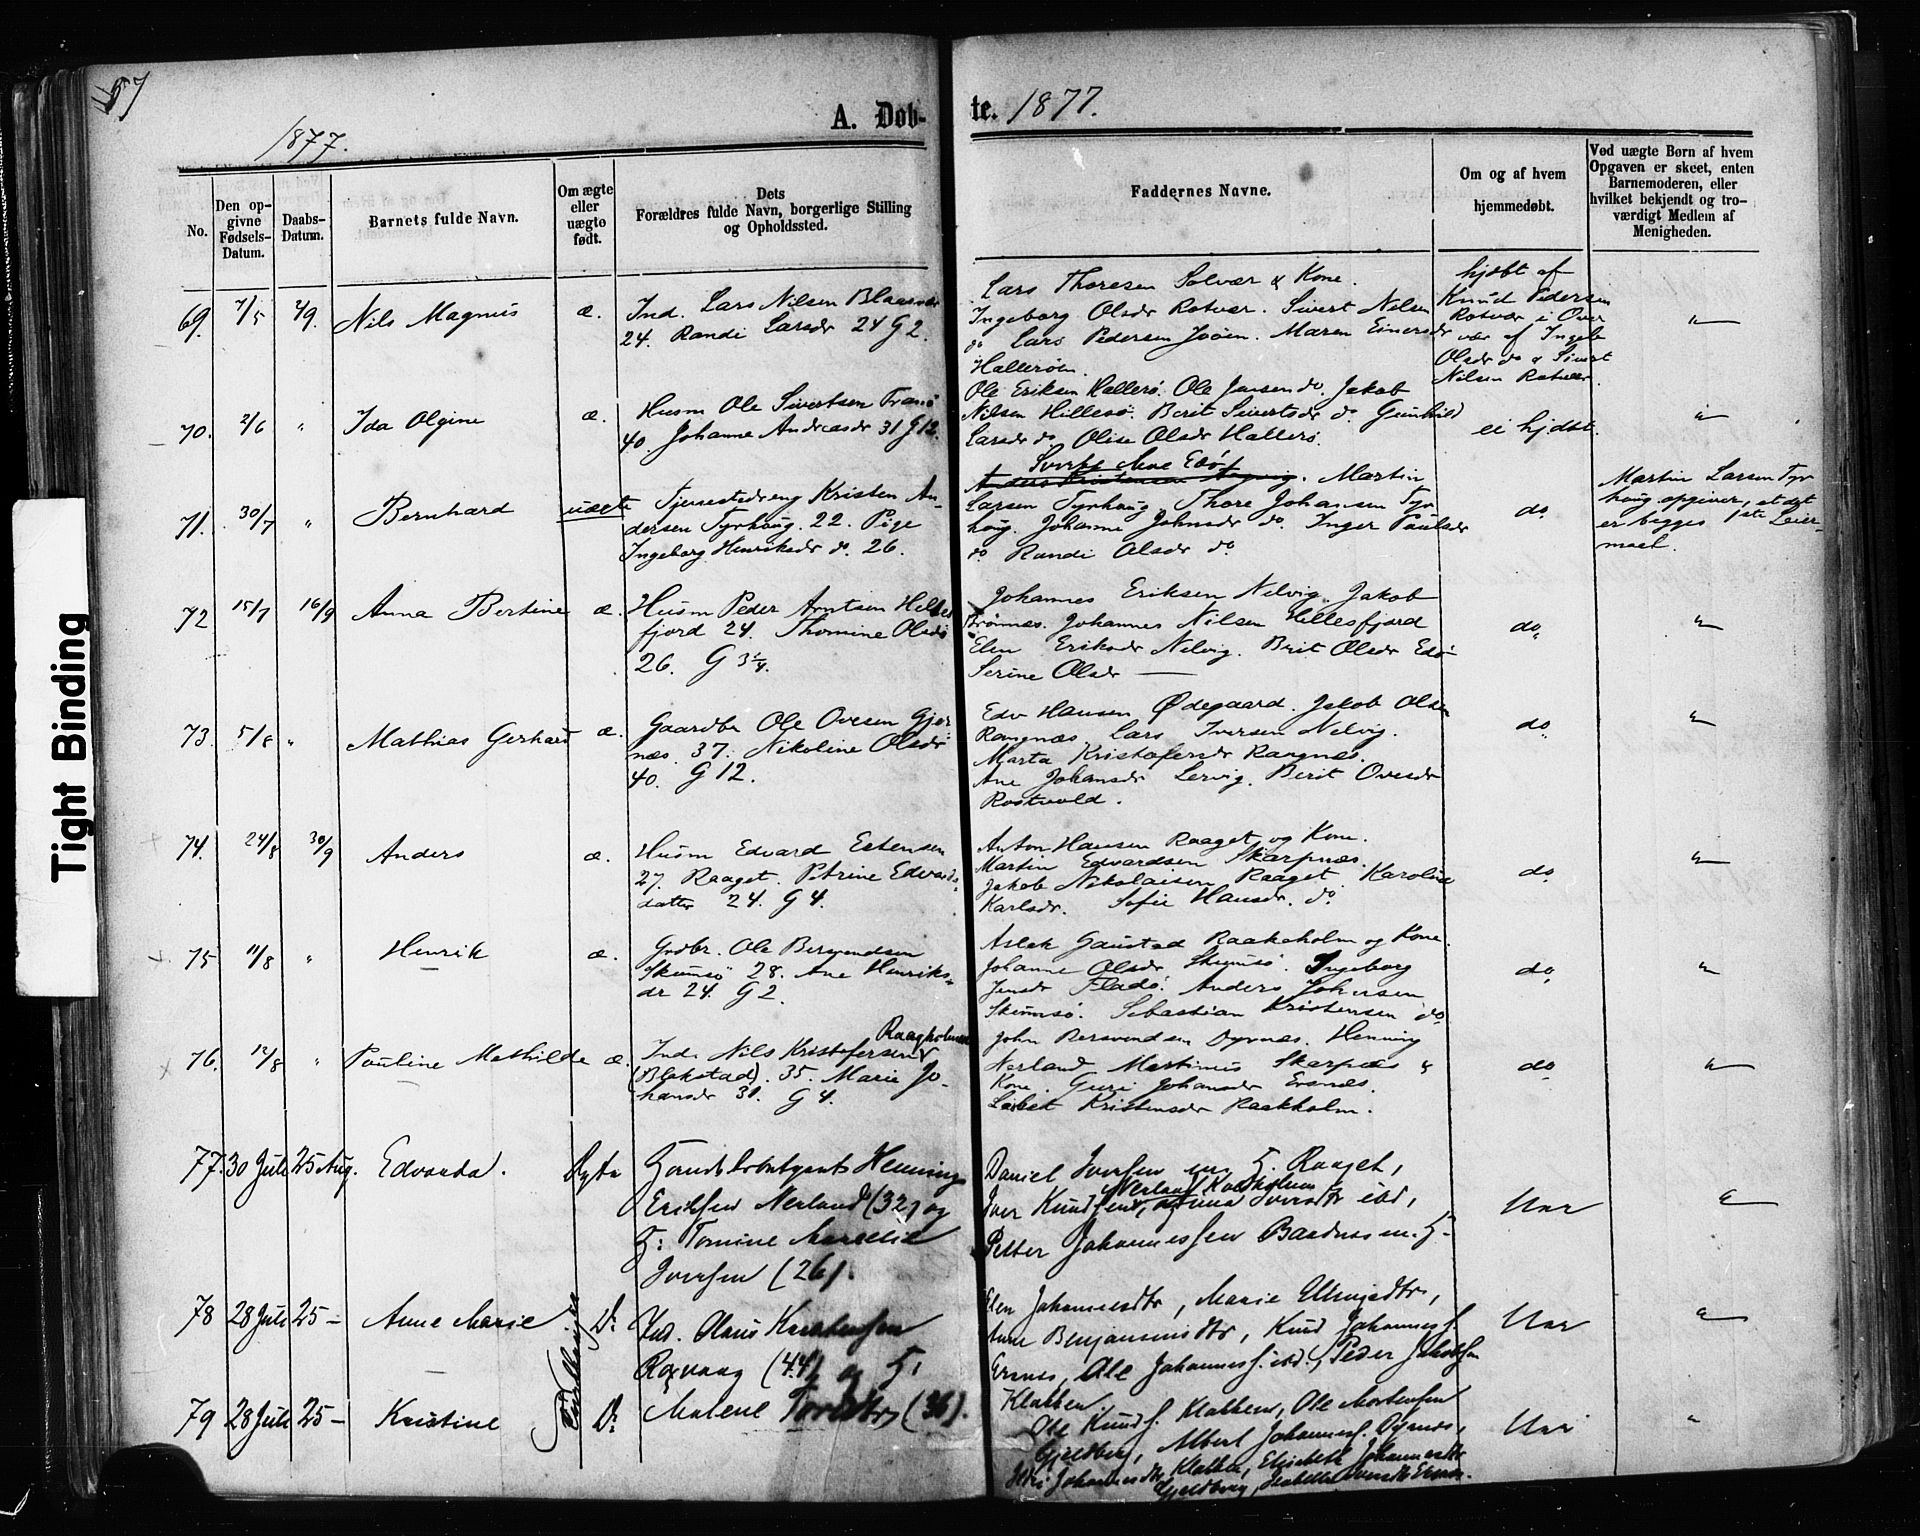 57
1877.
A. Døb-
te. 1877.
No.
Den op-
givne
Fødsels-
Datum.
Daabs-
Datum.
Barnets fulde Navn.
Om ægte
eller
uægte
født.
Dets
Forældres fulde Navn, borgerlige Stilling
og Opholdssted.
Faddernes Navne.
Om og af hvem
hjemmedøbt.
Ved uægte Børn af hvem
Opgaven er skeet, enten
Barnemoderen, eller
hvilket bekjendt og tro-
værdigt Medlem af
Menigheden.
69. 7/5 2/9. Nils Magnus æ.
Ind. Lars Nilsen
24. Randi Larsdr 24 G 2.
Lars Thoresen Solvær & Kone.
Ingeborg Olsdr Rotvær. Sivert Nilsen
do Lars Pedersen Joøen. Maren Einersdr
Hallerøen.
hjdbt af
Knud Pedersen
Rotvær i Over
vær af Ingeb
Olsdr do & Sivert
Nilsen Rotvær.
"
70. 2/6 " Ida Olgine æ.
Husm Ole Sivertsen
40. Johanne Andreasdr 31 G 12.
Ole Eriksen Hallerø. Ole Jensen do. Jakob
Nilsen Hillesø. Berit Sivertsdr do. Gunhild
Larsdr do. Olise Olsdr Hallerø.
ei hjdøbt.
"
71. 30/7 " Bernhard uægte
Tjenestedreng Kristen An-
dersen Tyrhaug. 22. Pige
Ingeborg Henriksdr do. 26.
Edø
Anders Kristensen. Martin
Larsen Tyrhaug. Thore Johansen Tyr
haug. Johanne Johnsdr do. Inger Paulsdr
do Randi Olsdr do
do.
Martin Larsen Tyr
haug opgiver, at det
er begges 1ste Leier-
maal.
72 15/7 16/9 Anna Bertine æ.
Husm Peder Arntsen Helles
fjord 24. Thomine Olsdr
26. G 3/4.
Johannes Eriksen Nelvig. Jakob
Johannes Nilsen Hellesfjord
Elen Eriksdr Nelvig. Brit Olsdr Edø
Serine Olsdr —
do.
"
73. 5/8 " Mathias Gerhard æ.
Gaardbr Ole Ovesen Gjer-
næs. 37. Nikoline Olsdr
40. G 12.
Edv Hansen Ødegaard. Jakob Olsen
Rangnæs. Lars Iversen Nelvig.
Marta Kristofersdr Rangnæs.
Ane Johansdr Lervig. Berit Ovesdr
Rostvold.
do.
"
74. 24/8 30/9 Anders æ.
Husm Edvard Estensen
27. Raaget. Petrine Edvards-
datter 24. G 4.
Anton Hansen Raaget og Kone.
Martin Edvardsen Skarpnæs.
Jakob Nikolaisen Raaget. Karoline
Karlsdr. Sofie Hansdr. do.
do.
"
75 11/8 " Henrik æ.
Grdbr. Ole Bersvendsen
Skumsø 28. Ane Henriks-
dr 24. G 2.
Aslak Gaustad Raakeholm og Kone.
Johanne Olsdr. Skumsø. Ingeborg
Jensdr Fladø. Anders Johnsen
Skumsø. Sebastian Kristensen do.
do.
"
76. 12/8 " Pauline Mathilde æ.
Raagholmen
Ind. Nils Kristofersen
(Blakstad). 35. Marie Jo-
hansdr 31. G 4.
John Bersvendsen Dyrnæs. Henning
Nerland. Martinus Skarpnæs &
Kone. Guri Johansdr Ersnæs.
Lisbet Kristensdr Raakholm.
do.
"
77. 30 Juli 25 Aug. Edvarda. Ægte
Handelsbetjent Henning
Eriksen Nerland (32) og
H: Tomine Marselie
Iversen (26).
Daniel Iversen m. H. Raaget,
Nerland
Iver Knudsen, Iversdtr ibd,
Petter Johannessen Bardnes m. H.
Uær
"
78 28 Juli 25 – Anne Marie D:
Ind. Olaus Kristensen
(44) og H:
Malene (36).
Elen Johannesdtr, Marie Ellingsdtr,
Ane Benjaminsdtr, Knud Johanness.
Ersnes, Ole Johanness. ibd., Peder Jakobsen
Klakken.
"
Tvillinger
79 28 Juli 25 – Kristine D:
Ole Knuds. Klakken, Ole Mortensen
Gjeldberg, Albert Johanness. Dyrnes,
Johannesdtr Klakken, Elisabeth Johannesdtr
Gjeldberg,
"
Tight Binding